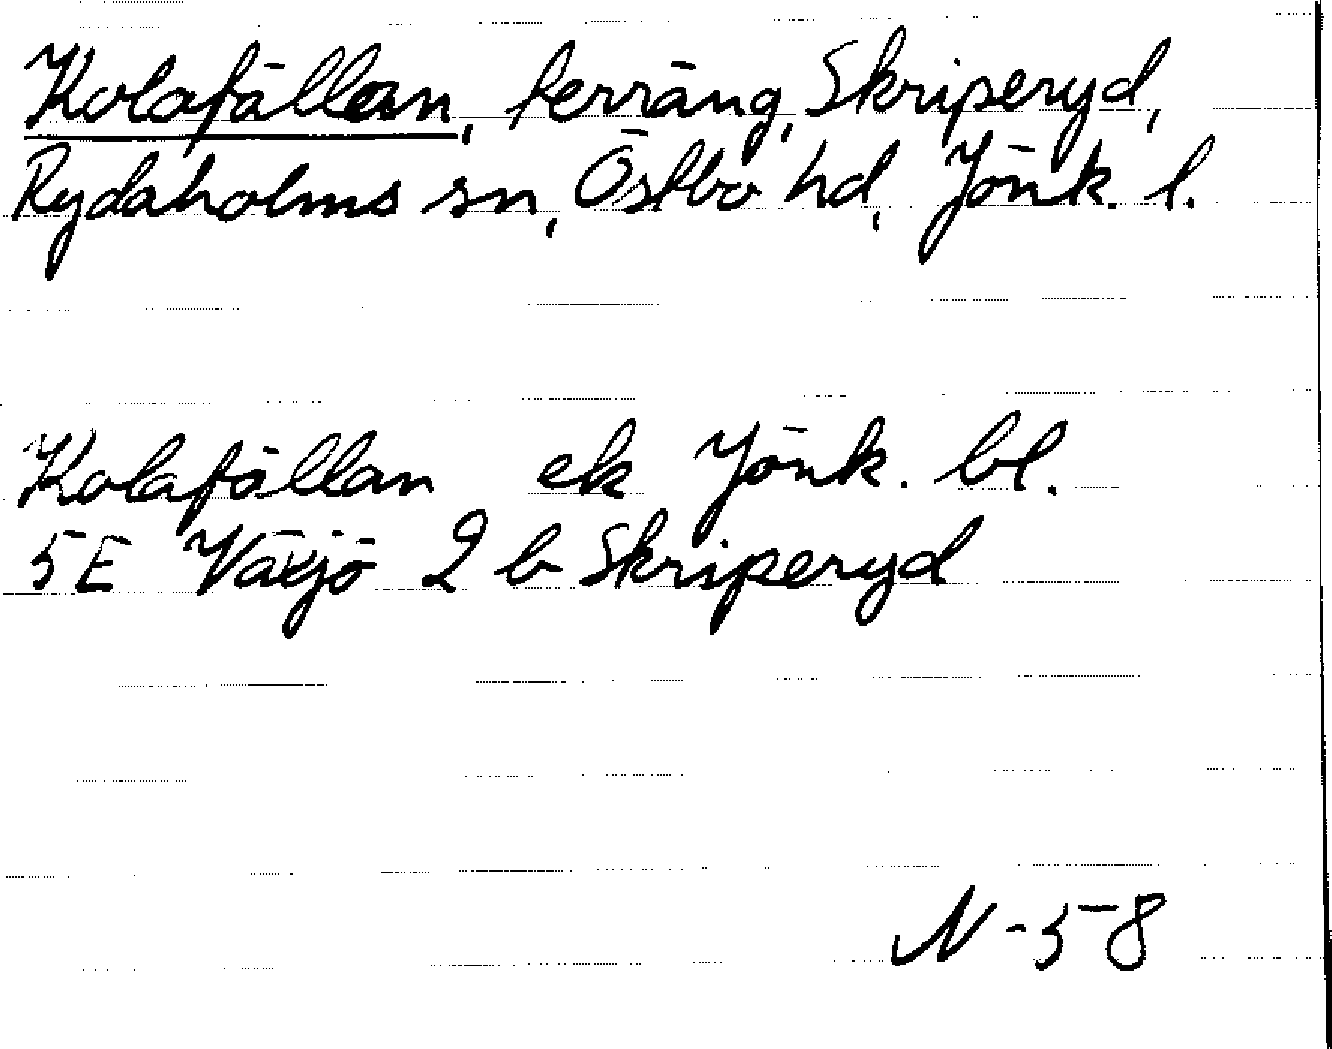 Kolafällan, terräng, Skriperyd,
Rydaholms sn, Östbo hd, Jönk. l.
Kolafällan ek Jönk. bl.
5E Växjö 2 b Skriperyd
N-58